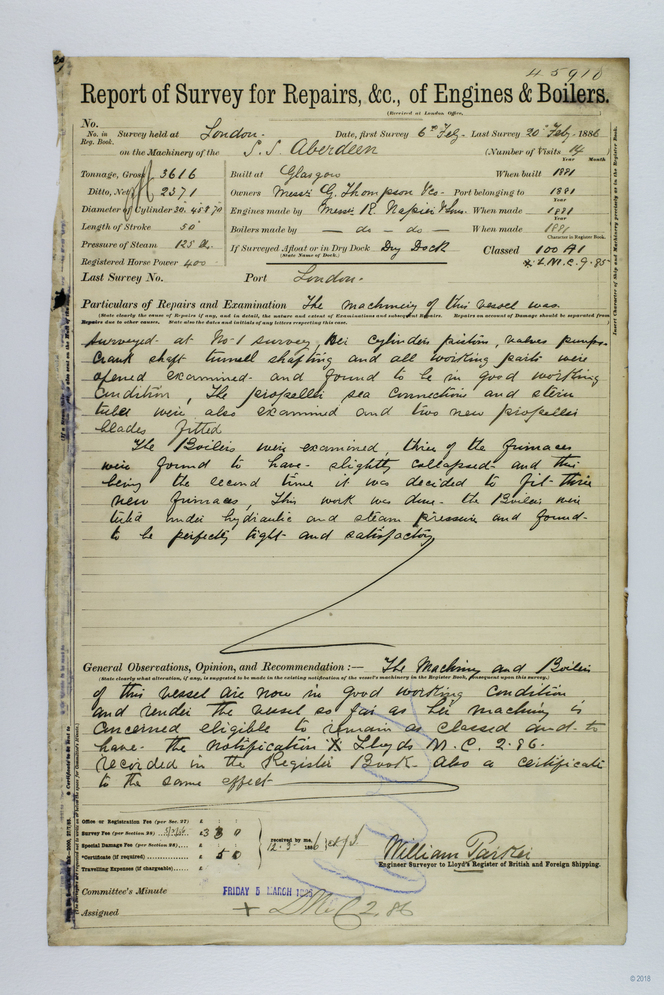 45910
Report of Survey for Repairs, &c., of Engines & Boilers.
(Received at London Office,
No.
No. in Reg. Book. Survey held at London. Date, first Survey 6th Feby. Last Survey 20th Feby 1886
on the Machinery of the S.S. Aberdeen (Number of Visits 14
Year Month
Tonnage, Gross 3616 Built at Glasgow When built 1881
Ditto, Net 2371 Owners Messrs G. Thompson & Co. Port belonging to 1881
Diameter of Cylinder 30. 45 & 70 Engines made by Messrs R. Napier & Sons. When made 1881
Length of Stroke 50 Boilers made by — do — do — When made 1881
Pressure of Steam 125 lb. If Surveyed Afloat or in Dry Dock Dry Dock Classed 100 A1
(State Name of Dock.) Character in Register Book.
Registered Horse Power 400 L.M.C. 9.85
Last Survey No. Port London.
Particulars of Repairs and Examination The machinery of this vessel was
(State clearly the cause of Repairs if any, and in detail, the nature and extent of Examinations and subsequent Repairs. Repairs on account of Damage should be separated from
Repairs due to other causes. State also the dates and initials of any letters respecting this case.
surveyed at No. 1 survey, Her cylinders pistons, valves pumps
crank shaft tunnel shafting and all working parts were
opened examined and found to be in good working
condition, The propeller sea connections and stern
tube were also examined and two new propeller
blades fitted
The Boilers were examined, three of the furnaces
were found to have slightly collapsed and this
being the second time it was decided to fit three
new furnaces, This work was done the Boilers were
tested under hydraulic and steam pressure and found
to be perfectly tight and satisfactory
General Observations, Opinion, and Recommendation :— The Machinery and Boilers
(State clearly what alteration, if any, is suggested to be made in the existing notification of the vessel's machinery in the Register Book, consequent upon this survey.)
of this vessel are now in good working condition
and render the vessel so far as her machinery is
concerned eligible to remain as classed and to
have the notification Lloyds M.C. 2.86.
recorded in the Register Book. Also a certificate
to the same effect
Office or Registration Fee (per Sec. 27) £
Survey Fee (per Section 28) £ 3 3 0
Special Damage Fee (per Section 28) £
*Certificate (if required) £ 5 0
Travelling Expenses (if chargeable) £
received by me,
12.3.1886
William Parker
Engineer Surveyor to Lloyd's Register of British and Foreign Shipping.
Committee's Minute FRIDAY 5 MARCH 1886
Assigned + LMC 2.86
© 2018